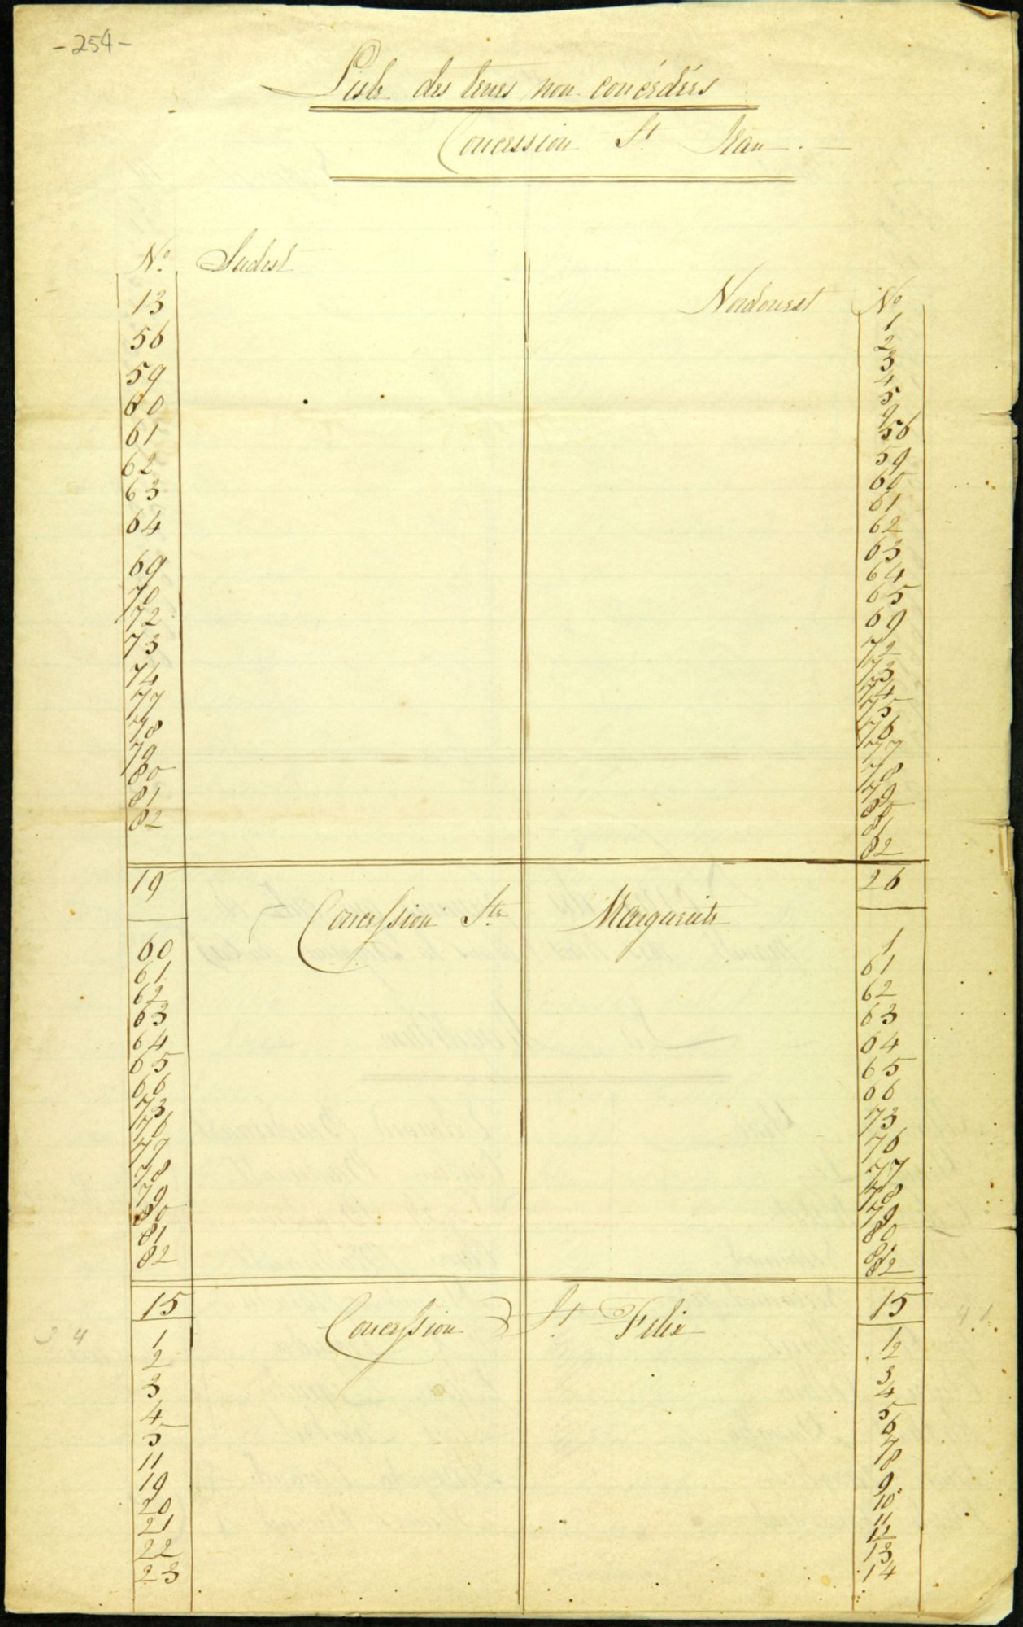 -254-
Liste des terres non concédées
Concession St Jean.
No. Sudest
13
56
59
60
61
62
63
64
69
70
72
73
74
77
78
79
80
81
82
19
Nordouest No
1
2
3
4
5
9
56
59
60
61
62
63
64
65
69
72
73
74
75
76
77
78
79
80
81
82
26
Concession Ste Marguerite
60
61
62
63
64
65
66
73
76
77
78
79
80
81
82
15
1
61
62
63
64
65
66
73
76
77
78
79
80
81
82
15
Concession St Felix
1
2
3
4
5
11
19
20
21
22
23
1
2
3
4
5
6
7
8
9
10
11
12
13
14